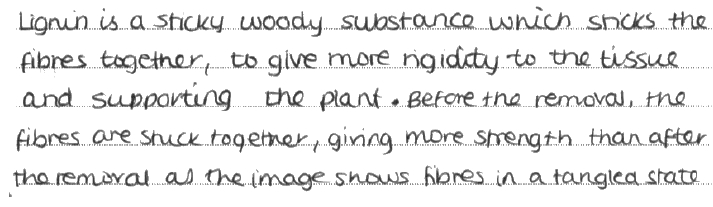 Lignin is a sticky woody substance which sticks the
fibres together, to give more rigidity to the tissue
and supporting the plant. Before the removal, the
fibres are stuck together, giving more strength than after
the removal as the image shows fibres in a tangled state